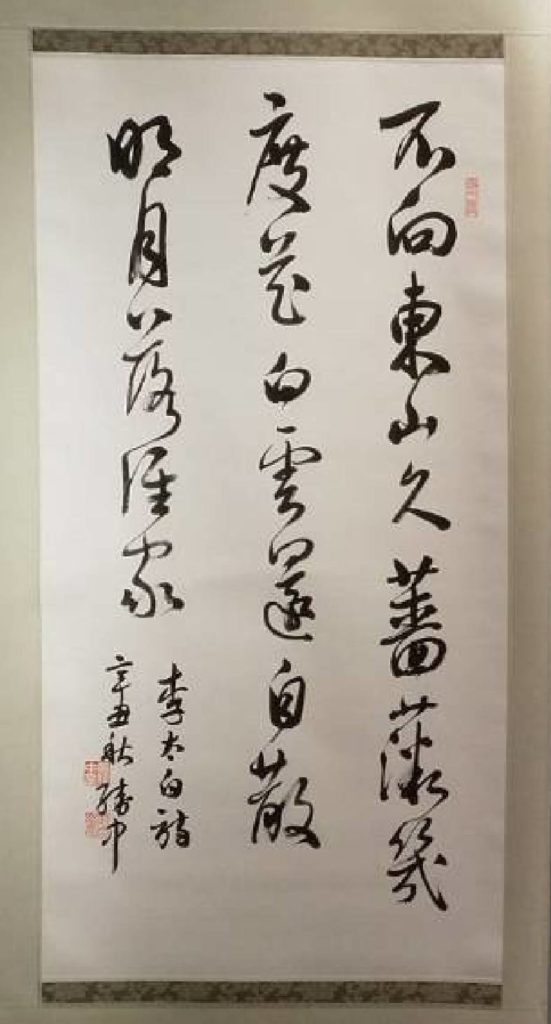 不向東山久薔薇幾
度花白雲還自散
明月落誰家
李太白詩
辛丑秋